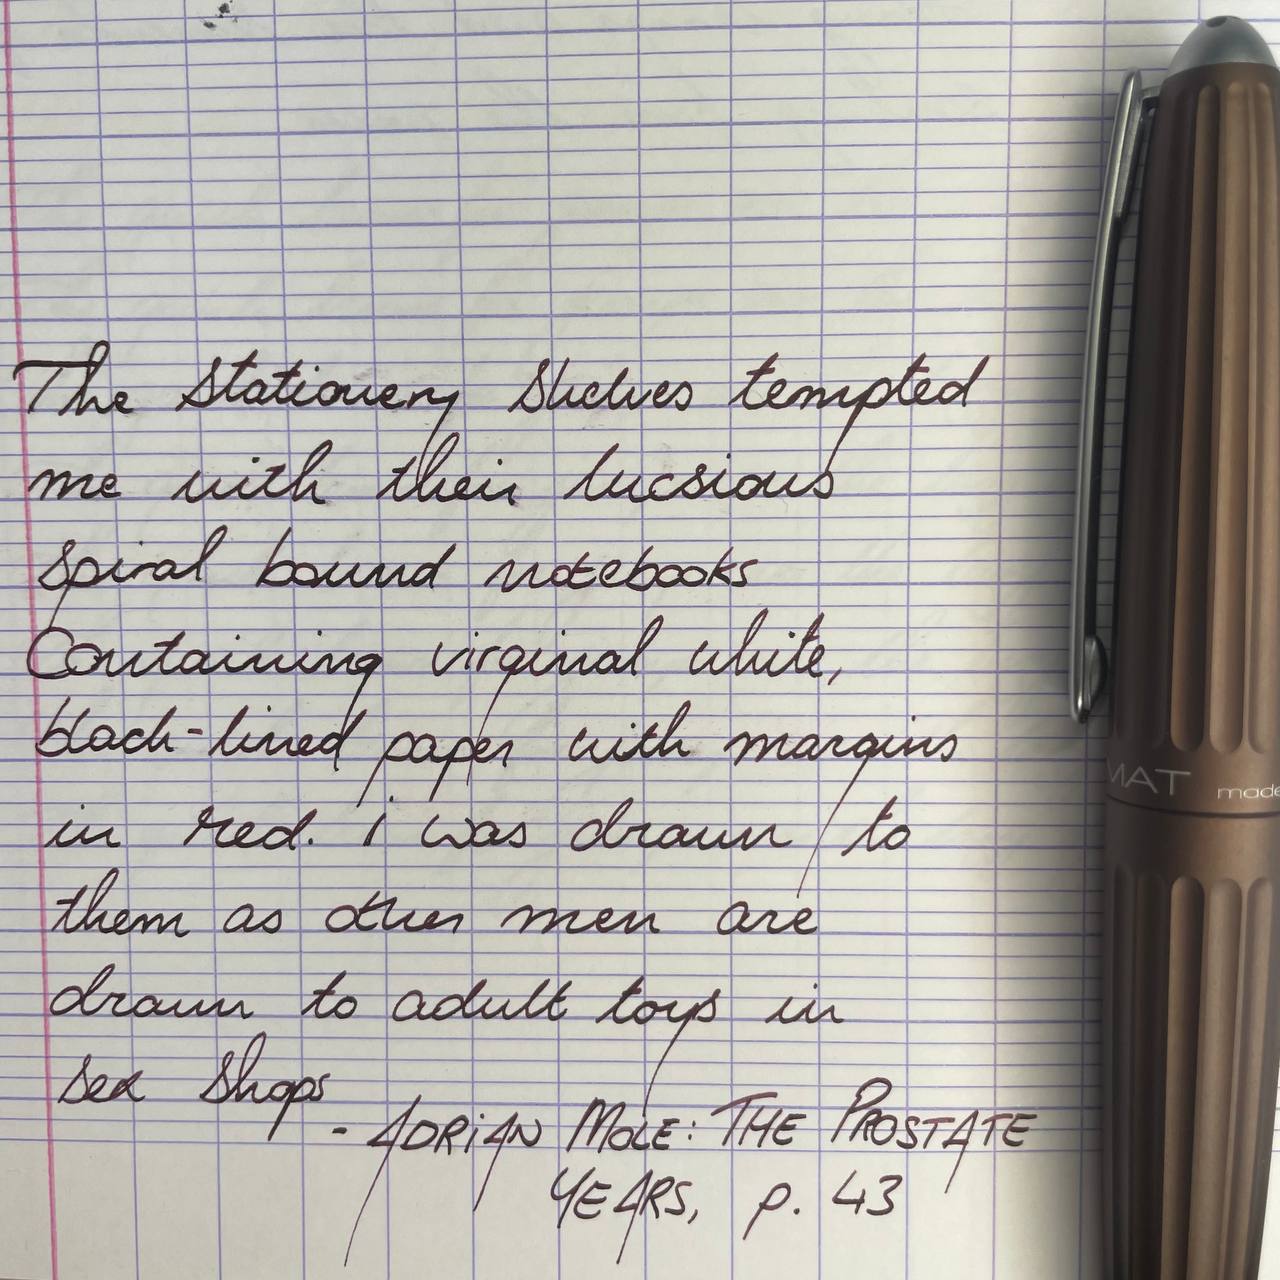 The stationery shelves tempted
me with their lucsious
spiral bound notebooks
Containing virginal white,
black-lined paper with margins
in red. i was drawn to
them as other men are
drawn to adult toys in
sex shops
- ADRiAN MOLE: THE PROSTATE
YEARS, p. 43
MAT made